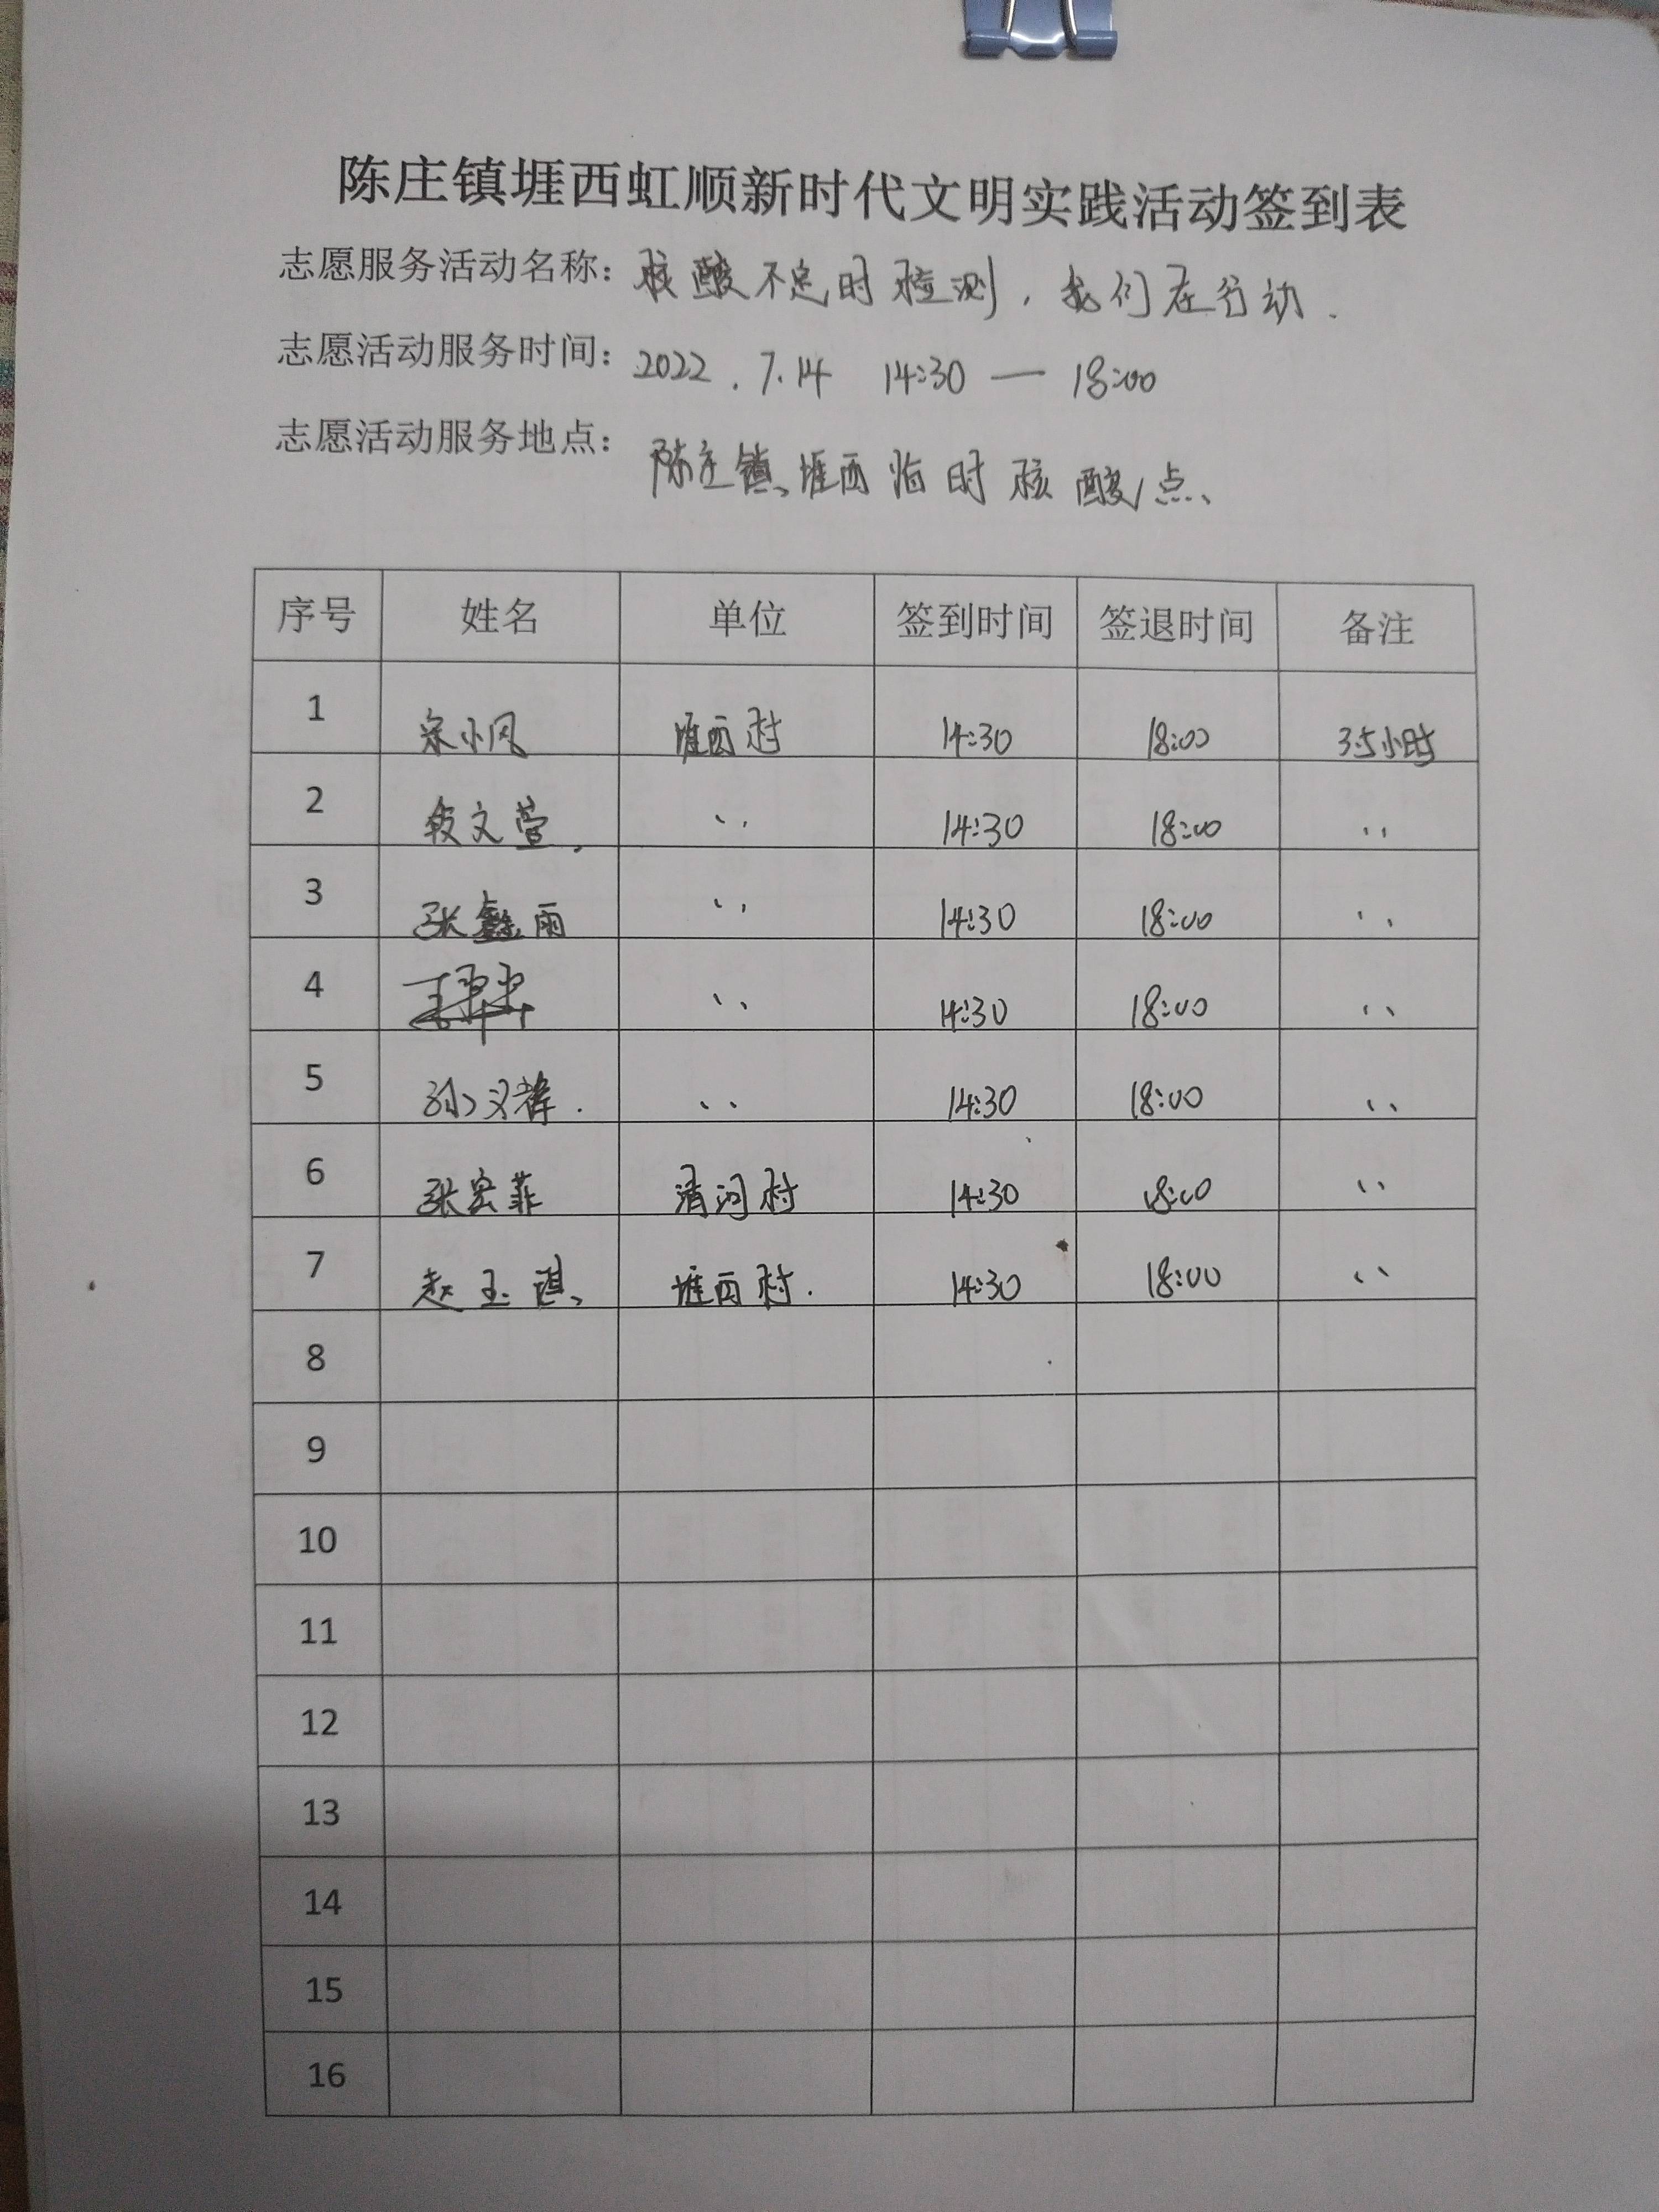 陈庄镇堐西虹顺新时代文明实践活动签到表
志愿服务活动名称：核酸不定时检测，我们在行动.
志愿活动服务时间：2022.7.14 14:30 — 18:00
志愿活动服务地点：陈庄镇、堐西临时核酸点、
序号 姓名 单位 签到时间 签退时间 备注
1 宋小风 堐西村 14:30 18:00 3.5小时
2 段文萱 、、 14:30 18:00 、、
3 张鑫雨 、、 14:30 18:00 、、
4 、、 14:30 18:00 、、
5 孙 、、 14:30 18:00 、、
6 张宏菲 清河村 14:30 18:00 、、
7 赵玉琪、 堐西村. 14:30 18:00 、、
8
9
10
11
12
13
14
15
16